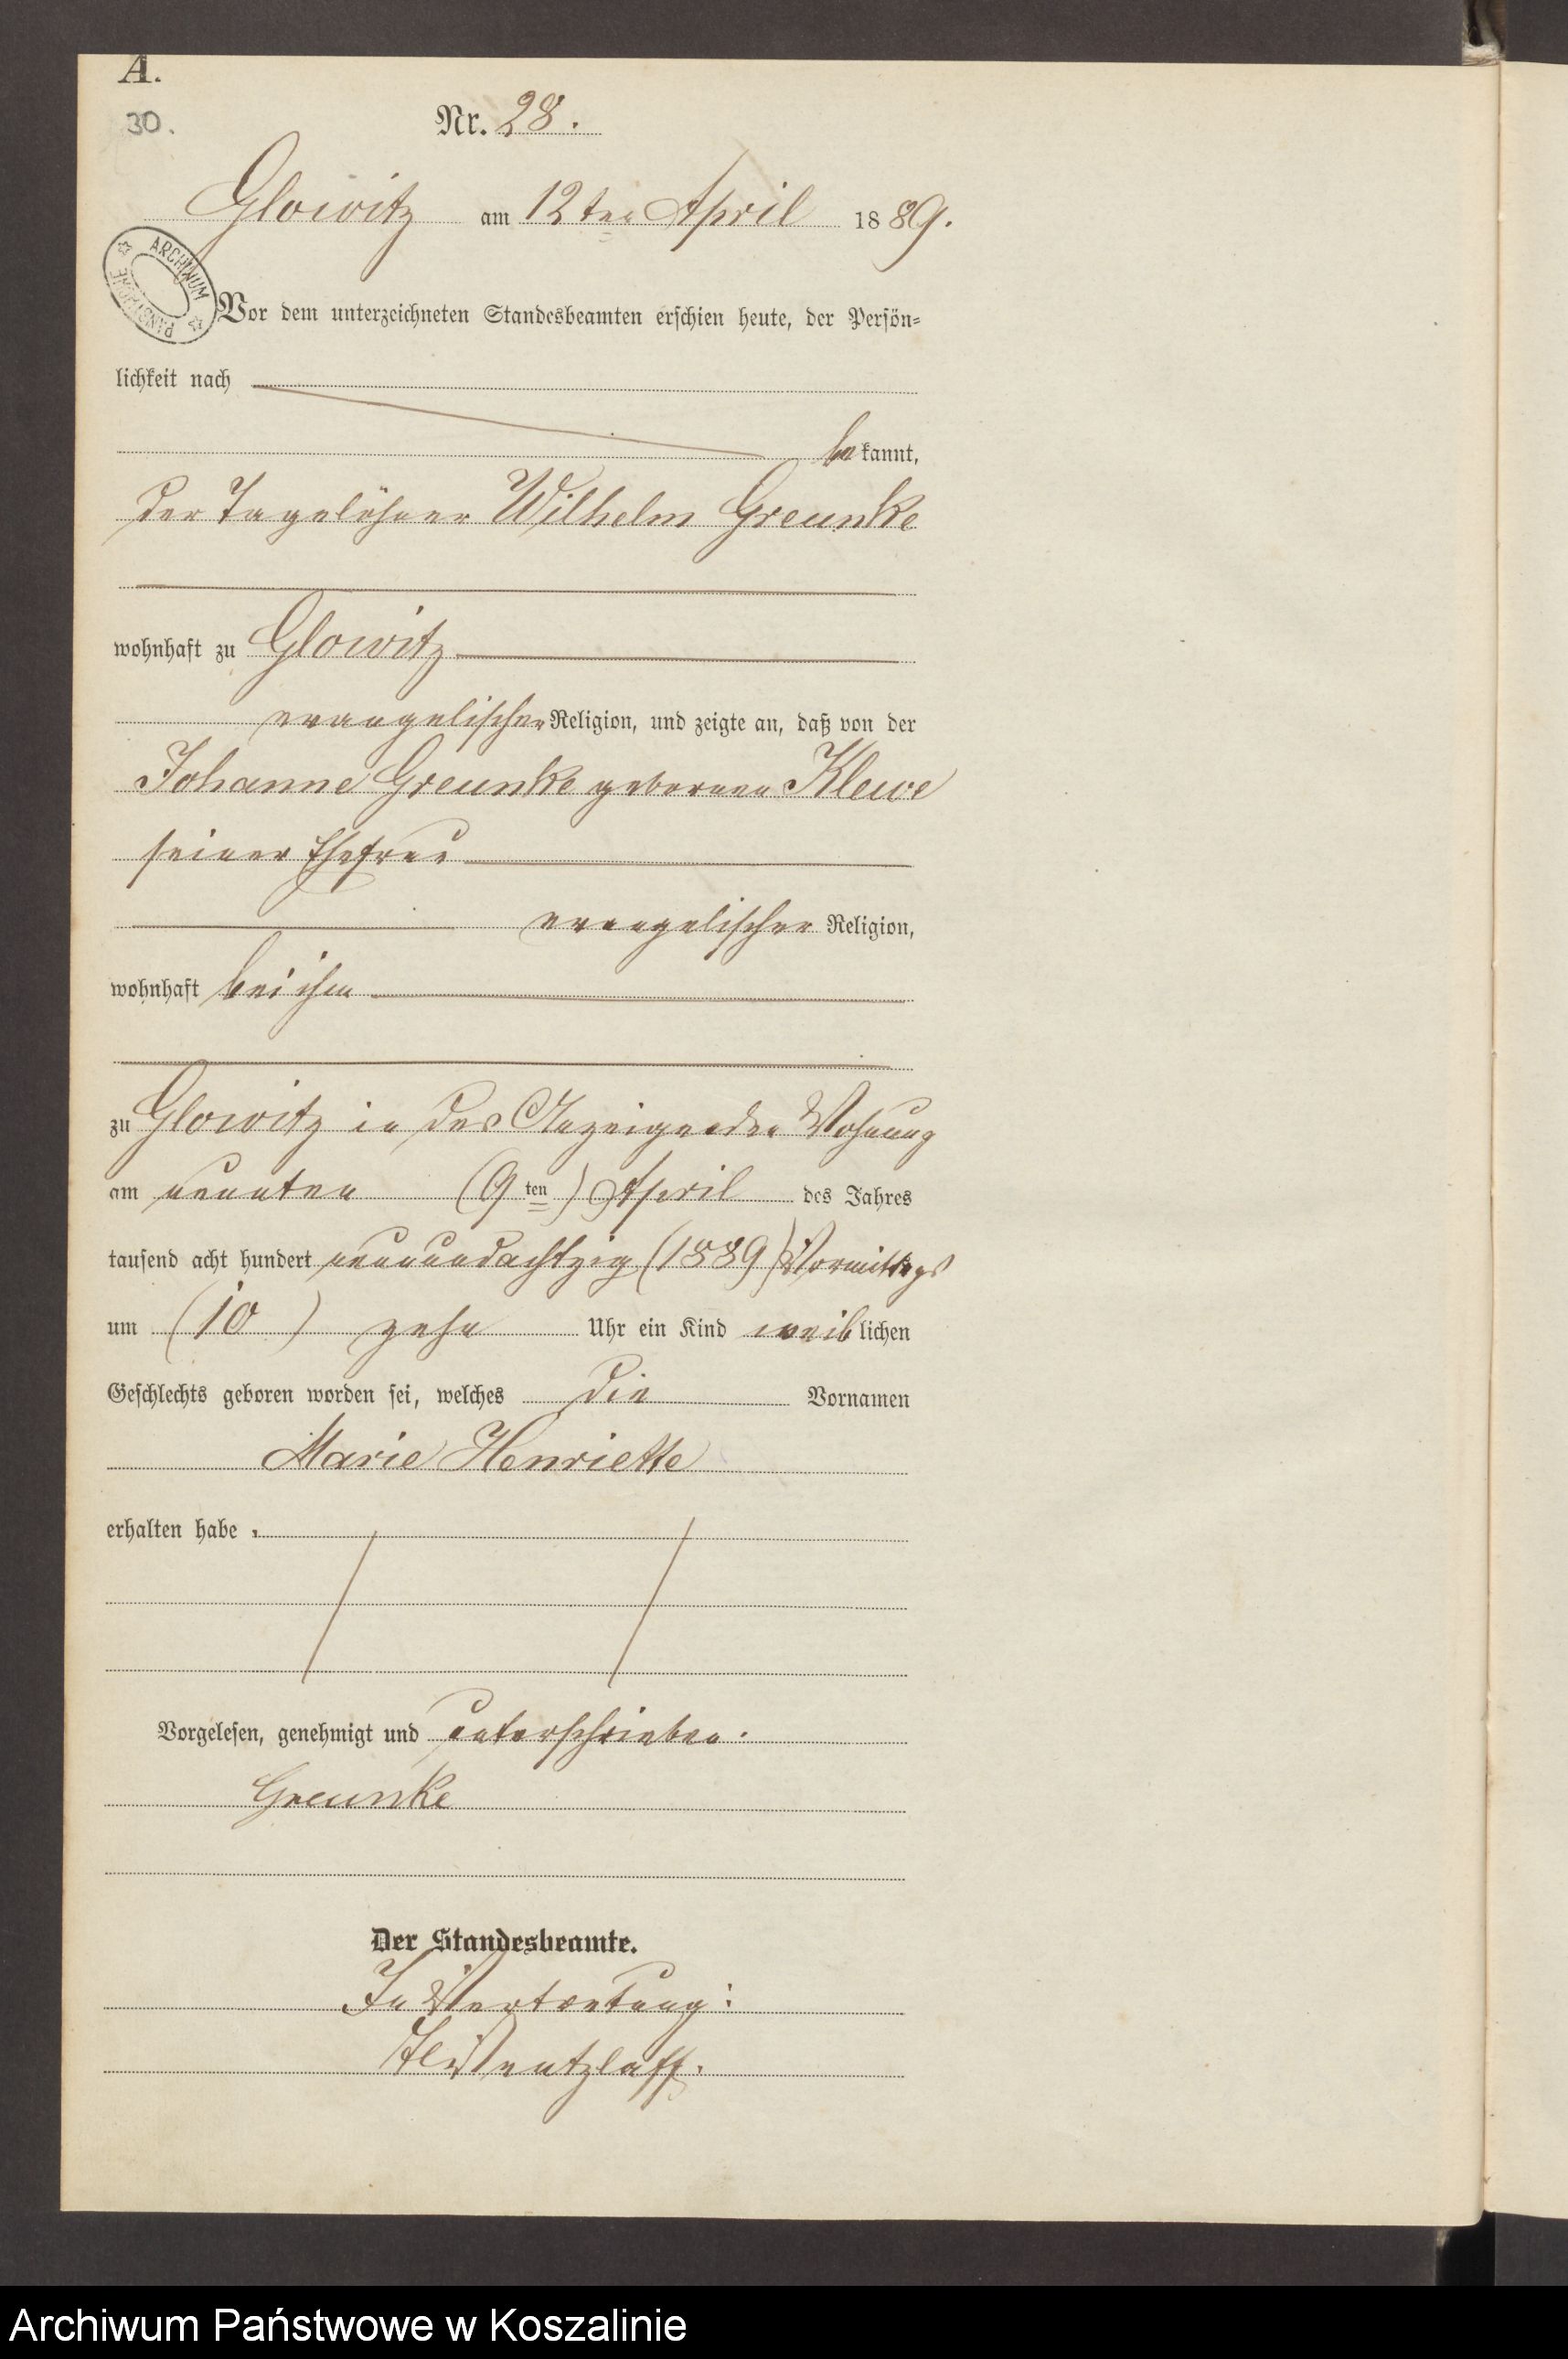 A.
30.
Nr. 28.
Glowitz am 12ten April 1889.
ARCHIWUM PAŃSTWOWE
Vor dem unterzeichneten Standesbeamten erschien heute, der Persön=
lichkeit nach
bekannt,
der Tagelöhner Wilhelm Greunke
wohnhaft zu Glowitz
evangelischer Religion, und zeigte an, daß von der
Johanne Greunke geborenen Klewe
seiner Ehefrau
evangelischer Religion,
wohnhaft bei ihm
zu Glowitz in des Anzeigenden Wohnung
am neunten (9ten) April des Jahres
tausend acht hundert neunundachtzig (1889) Vormittags
um (10) zehn Uhr ein Kind weiblichen
Geschlechts geboren worden sei, welches die Vornamen
Marie Henriette
erhalten habe.
Vorgelesen, genehmigt und unterschrieben.
Greunke
Der Standesbeamte.
In Vertretung:
Wentzlaff.
Archiwum Państwowe w Koszalinie